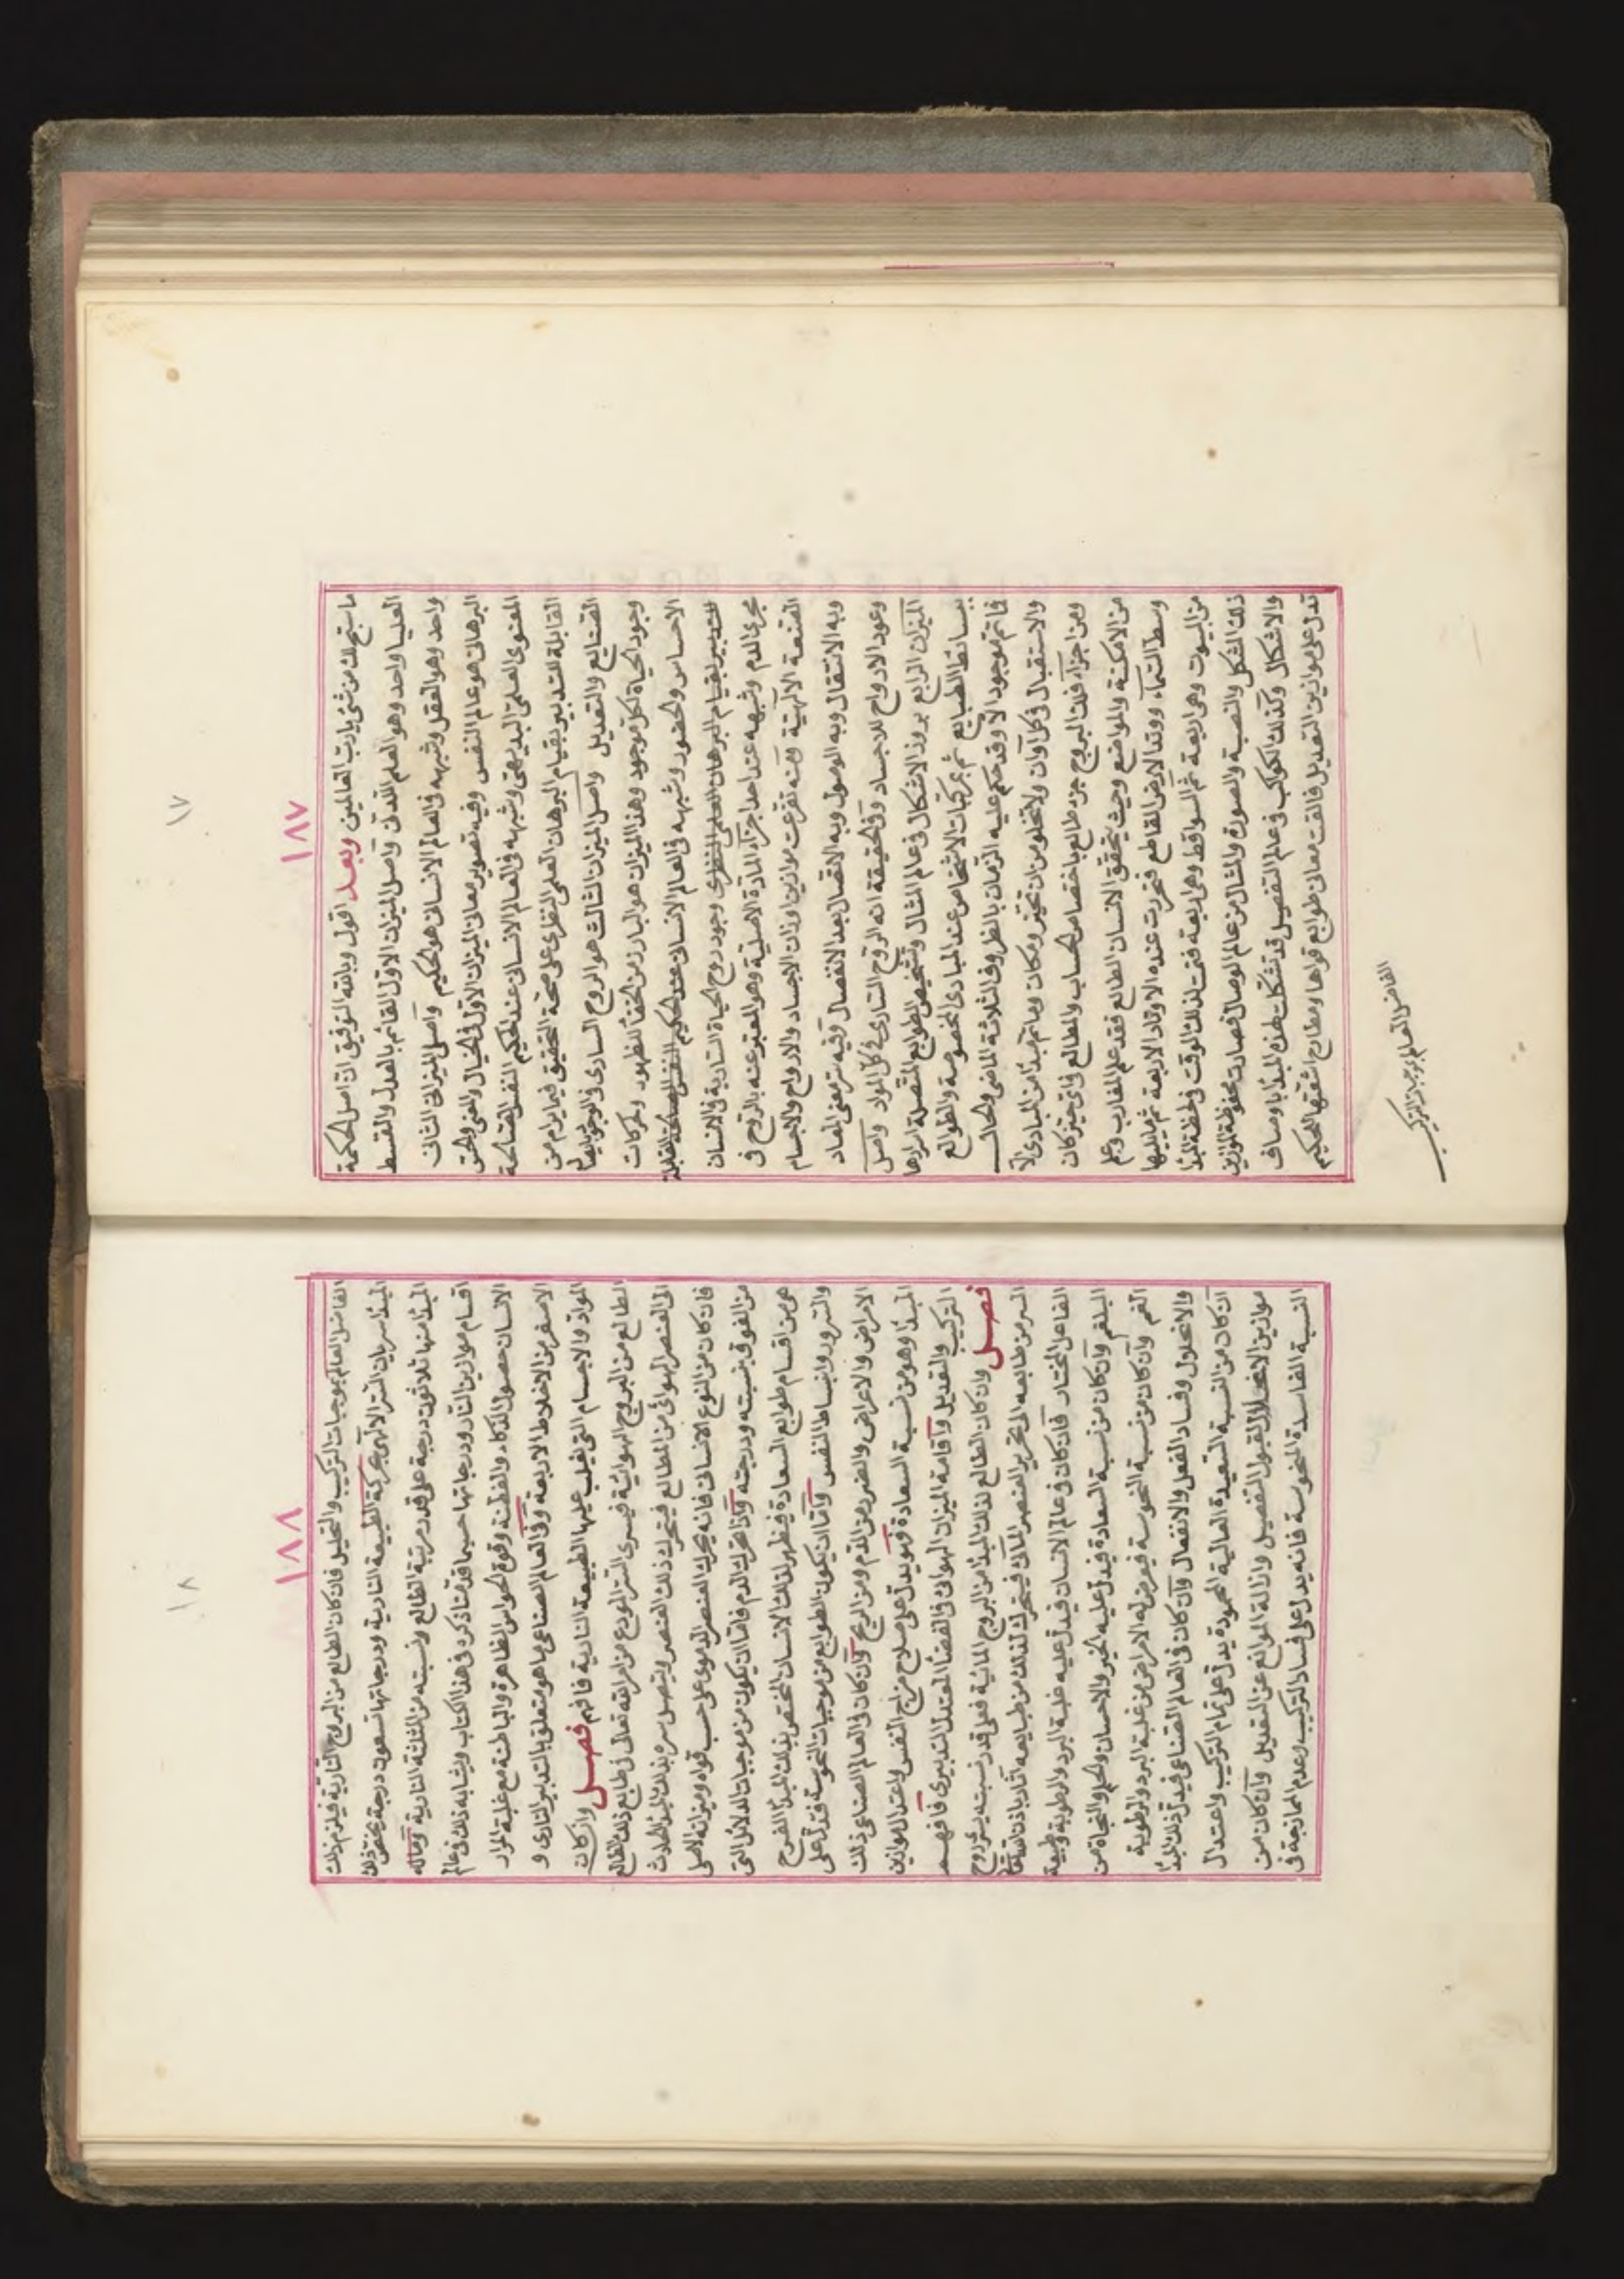 ١٧
١٨٧
ما سبّح لك من شيء يا رب العالمين وبعد اقول وبالله التوفيق ان اصل الحكمة
العليا واحد وهو العلم اللدني واصل الميزان الاول القائم بالعدل والقسط
واحد وهو العقل وشبهه في العالم الانساني هو الحكيم واصل الميزان الثاني
البرهاني هو عالم النفس وفيه تصوير معاني الميزان الاول في الخيال والمعنى والحق
المعنوي العلمي البديهي وشبهه في العالم الانساني عند الحكيم النفس الصالحة
القابلة للتدبير بقيام البرهان العلمي النظري على صحة التحقيق فيما يرام من
الصنايع والتعديل واصل الميزان الثالث هو الروح الساري في الوجود
وجود الحياة لكل موجود وهذا الميزان هو البارز من الخفا للظهور ولحركات
الاحساس والحضور وشبهه في العالم الانساني عند الحكيم النفس الصالحة القابلة
للتدبير بقيام البرهان العلمي النظري وجود روح الحياة السارية في الانسان
مجرى الدم وشبهه عند احد اجزاء المادة الاصلية وهو المعبر عنه بالروح في
الصنعة الالهية ومنه تفرعت موازين اوزان الاجساد والارواح والاجسام
وبه الانتقال وبه الوصول وبه الاتصال بعد الانفصال وفيه سر معنى المعاد
وعود الارواح للاجساد وفي الحقيقة انه الروح الساري في كل المواد واصل
الميزان الرابع بروز الاشكال في عالم المثال وتشخيص الطوابع المتصلة
ببسائط الطبايع ثم بمركبات الاشخاص عند المبادي المخصوصة والطوالع
فما تم موجود الا وقد حكم عليه الزمان بالظروف الثلاثة الماضي والحال
والاستقبال في كل اوان ولا تخلو من ان تحيز ومكان وما تم مبدا من المبادي الا
ومن اجزاء فلك البروج جزء طالع باختصاص الحساب والمطالع في اي حيز كان
من الامكنة والمواضع وحيث تحقق الانسان الطالع فقد علم المغارب وعلم
وسط السماء ووتد الارض القاطع فتحررت عنده الاوتاد الاربعة ثم ما يليها
من البيوت وهي اربعة ثم السواقط وهي اربعة فتمت لذلك الوقت في لحظة المبدا
ذلك الشكل والنصبة والصورة والمثال من عالم الوصال فصارت محفوظة الموازين
والاشكال وكذلك الكواكب في عالم التفصيل قد تشكلت لهذه المبدا باوصاف
تدل على موازين التعديل فالفت معاني طوابع قواها ومطارح اشعتها الحكيم
الفاضل العالم بموجبات التركيب
١٨
١٨٨
الفاضل العالم بموجبات التركيب والتحليل فان كان الطالع من البروج النارية فيلزم ذلك
المبدا سريان السر الالهي بحركة الطبيعة النارية ودرجاتها تسعون درجة يختص ذلك
المبدا منها ثلاثون درجة على قدر مرتبة الطالع ونسبته من المثلثة النارية وماله
اقسام موازين النار ودرجاتها حسبما قدمنا ذكره في هذا الكتاب ويشابه ذلك في عالم
الانسان حصول الذكاء والفطنة وقوة الحواس الظاهرة والباطنة مع غلبة المرار
الاصفر من الاخلاط الاربعة وفي العالم الصناعي ما هو متعلق بالتدبير الناري و
المواد والاجسام التي تغلب عليها الطبيعة النارية فافهم فصل وان كان
الطالع من البروج الهوائية فيسري السر المودع من امر الله تعالى في طابع ذلك الطالع
الى العنصر الهوائي من المطالع فيتحرك ذلك العنصر ويتصل سره بذلك المبدا
فان كان من النوع الانساني فانه يحرك العنصر الدموي على حسب قواه وميزانه الاصلي
من القوى بنسبته ودرجته واذا تحرك الدم فاما ان يكون من موجبات الدلائل التي
هي من اقسام طوابع السعادة فيظهر لذلك الانسان المختص بذلك المبدا الفرح
والسرور وانبساط النفس واما ان يكون الطوابع من موجبات النحوسة فتدل على
الامراض والاعراض والضرر من الدم ومن الريح وان كان في العالم الصناعي ذلك
المبدا وهو من نسبة السعادة فهو يدل على صلاح مزاج النفس واعتدال موازين
التركيب والتعديل واقامة الميزان الهوائي في الفضا المعتدل التدبيري فافهم
فصل وان كان الطالع لذلك المبدا من البروج المائية فعلى قدر نسبته يبرز روح
السر من طابعه الى تحريك العنصر المائي فيتحرك لذلك من طبايعه آثار باذن
الفاعل المختار فان كان في عالم الانسان فيدل عليه غلبة البرد والرطوبة وطبيعة
البلغم وان كان من نسبة السعادة فيدل عليه الخير والاحسان والحلم والنجاة من
الغم وان كان من نسبة النحوسة فيعرض له الامراض من غلبة البرد والرطوبة
والانحلال وفساد الفعل والانفعال وان كان في العالم الصناعي فيدل ذلك المبدا
ان كان من النسبة السعيدة العالية المحمودة يدل على تمام التركيب واعتدال
موازين الانحلال لقبول التفصيل وازالة الموانع عن التعديل وان كان من
النسبة الفاسدة المنحوسة فانه يدل على فساد التركيب وعدم الممازجة في